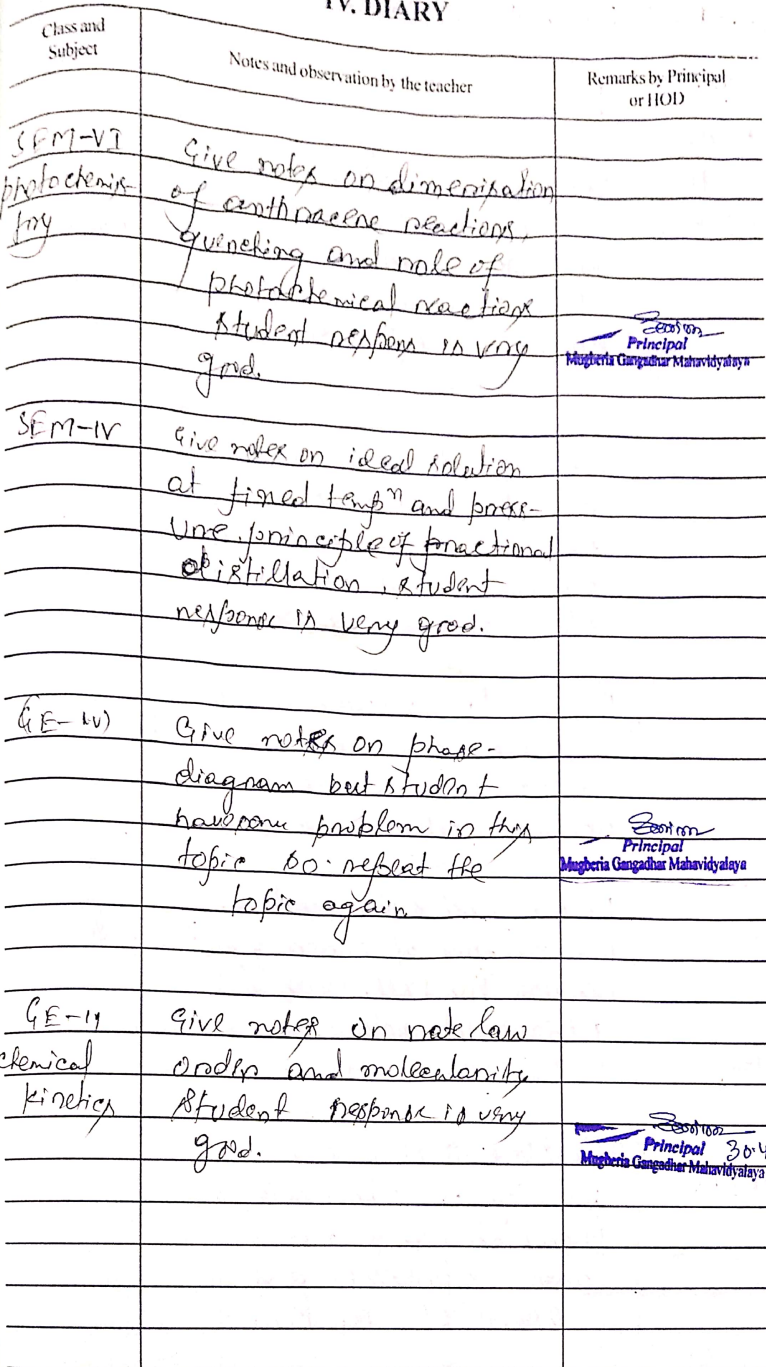 IV. DIARY
Class and
Subject
Notes and observation by the teacher
Remarks by Principal
or HOD
SEM-VI
photochemis-
try
Give notes on dimerization
of anthracene reactions,
quenching and role of
photochemical reactions
student respons is very
good.
Principal
Mugberia Gangadhar Mahavidyalaya
SEM-IV
Give notes on ideal solution
at fixed tempn and press-
ure, principle of fractional
distillation, student
response is very good.
GE-IV
Give notes on phase-
diagram but student
have some problem in this
topic so repeat the
topic again
Principal
Mugberia Gangadhar Mahavidyalaya
GE-
chemical
kinetics
Give notes on rate law
order and molecularity
student response is very
good.
Principal 30.4
Mugberia Gangadhar Mahavidyalaya